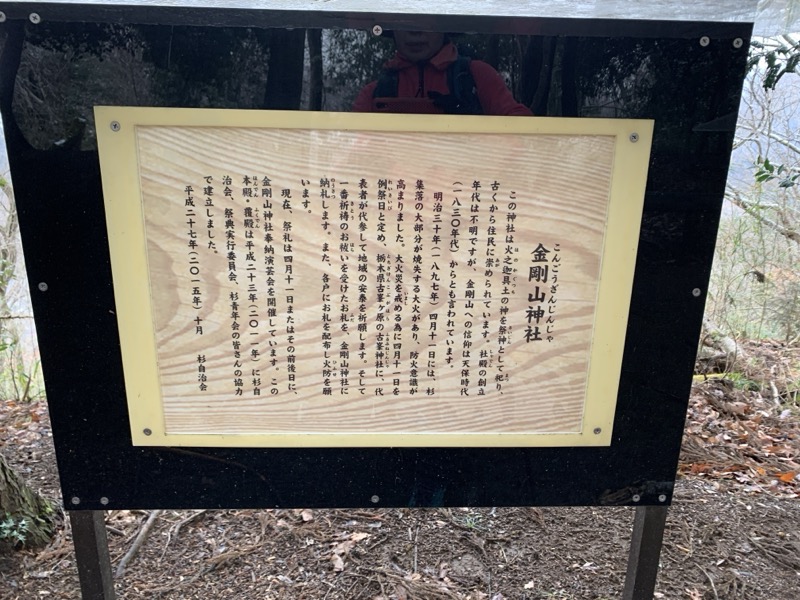 こんごうざんじんじゃ
金剛山神社
この神社は火之迦具土の神を祭神として祀り、
古くから住民に崇められています。社殿の創立
年代は不明ですが、金剛山への信仰は天保時代
（一八三〇年代）からとも言われています。
明治三十年（一八九七年）四月十一日には、杉
集落の大部分が焼失する大火があり、防火意識が
高まりました。大火災を戒める為に四月十一日を
例祭日と定め、栃木県古峯ヶ原の古峯神社に、代
表者が代参して地域の安泰を祈願します。そして
一番祈祷のお祓いを受けたお札を、金剛山神社に
納札します。また、各戸にお札を配布し火防を願
います。
現在、祭礼は四月十一日またはその前後日に、
金剛山神社奉納演芸会を開催しています。この
本殿・覆殿は平成二十三年（二〇一一年）に杉自
治会、祭典実行委員会、杉青年会の皆さんの協力
で建立しました。
平成二十七年（二〇一五年）十月　杉自治会